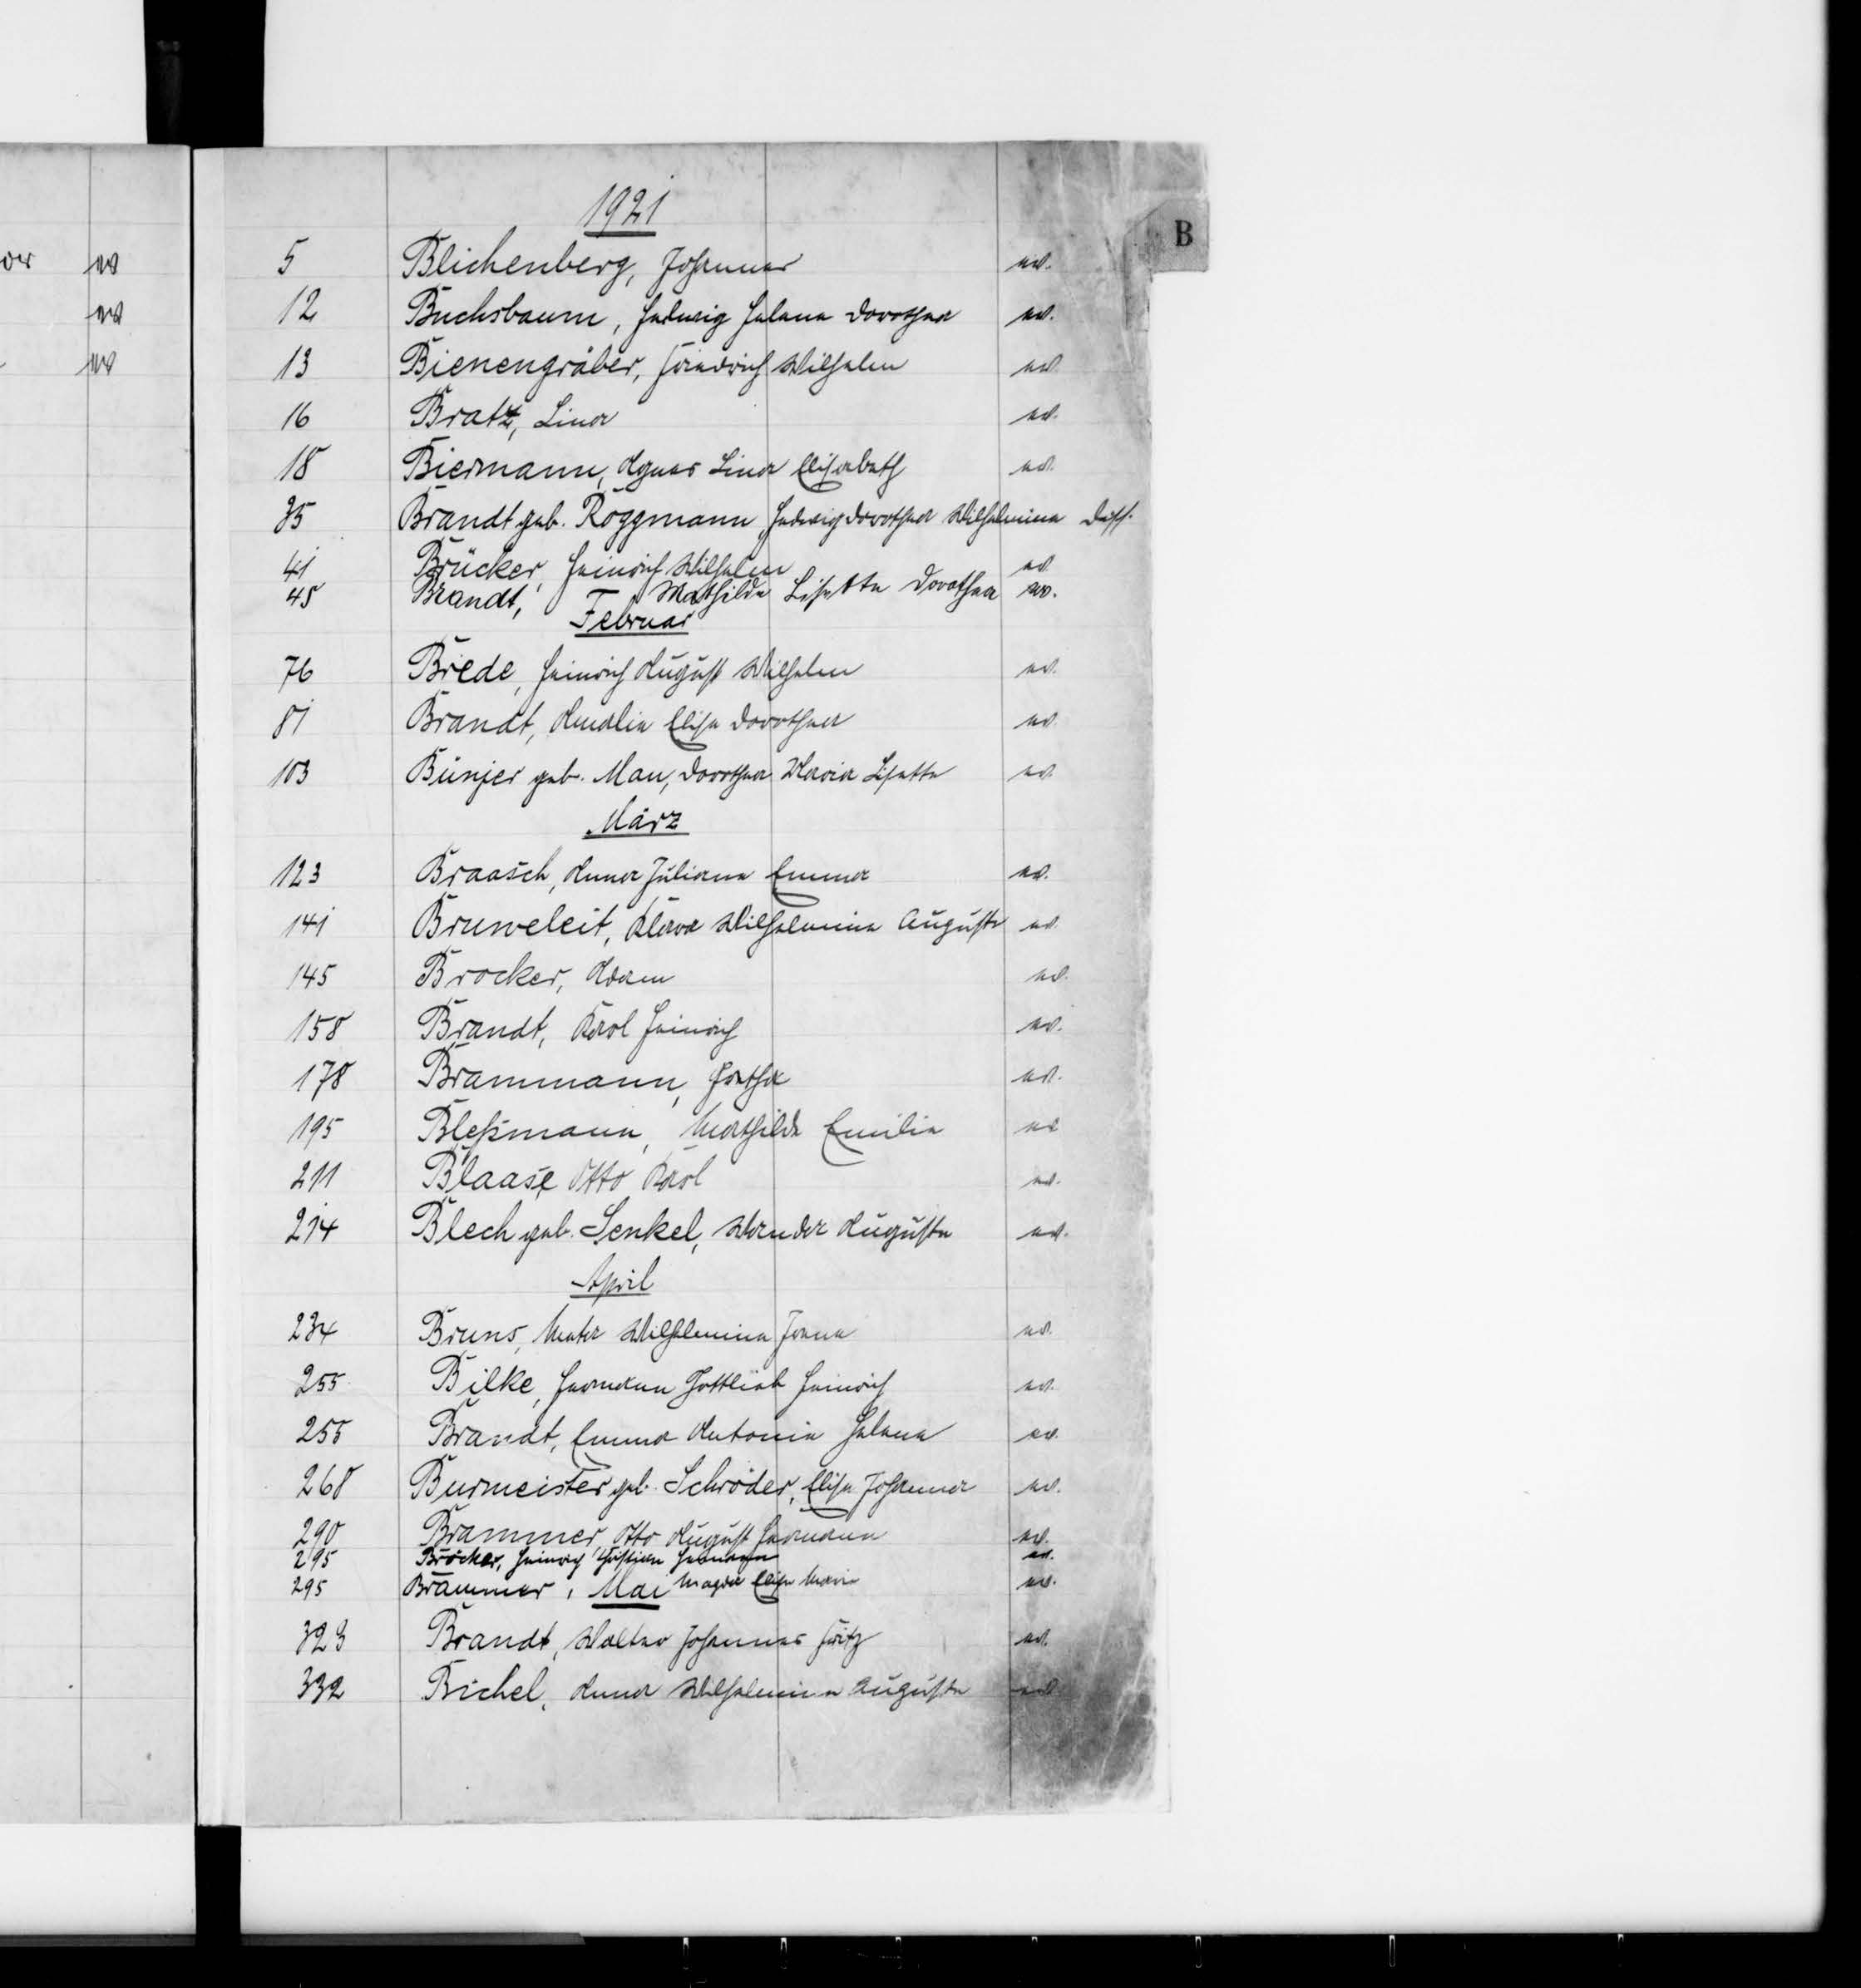 B
1921
5 Blichenberg, Johannes w.
12 Buchsbaum, Hedwig Helene Dorothea w.
13 Bienengräber, Friedrich Wilhelm w.
16 Bratz, Lina w.
18 Biermann, Agnes Lina Elisabeth w.
35 Brandt geb. Röggmann, Hedwig Dorothea Wilhelmine
41 Brücker, Heinrich Wilhelm w.
45 Brandt, Mathilde Lisette Dorothea w.
Februar
76 Briede, Heinrich August Wilhelm w.
81 Brandt, Amalie Elise Dorothea w.
103 Bünjer geb. Mau, Dorothea Maria Lisette w.
März
123 Braasch, Anna Juliane Emma w.
141 Bruweleit, Klara Wilhelmine Auguste w.
145 Brocker, Adam w.
158 Brandt, Karl Heinrich w.
178 Brammann, w.
195 Bleßmann, Mathilde Emilie w
211 Blaase, Otto Karl w.
214 Blech geb. Senkel, Wanda Auguste w.
April
234 Bruns, Meta Wilhelmine w.
255 Bilke, Hermann Gottlieb Heinrich w.
255 Brandt, Emma Antonie Helene w.
268 Burmeister geb. Schröder, Elise Johanna w.
290 Brammer, Otto August Hermann w.
295 Bröcker, Heinrich Christian Hermann w.
295 Brammer, Magda Elise Maria w.
Mai
323 Brandt, Walter Johannes Fritz w.
332 Bichel, Anna Wilhelmine Auguste w